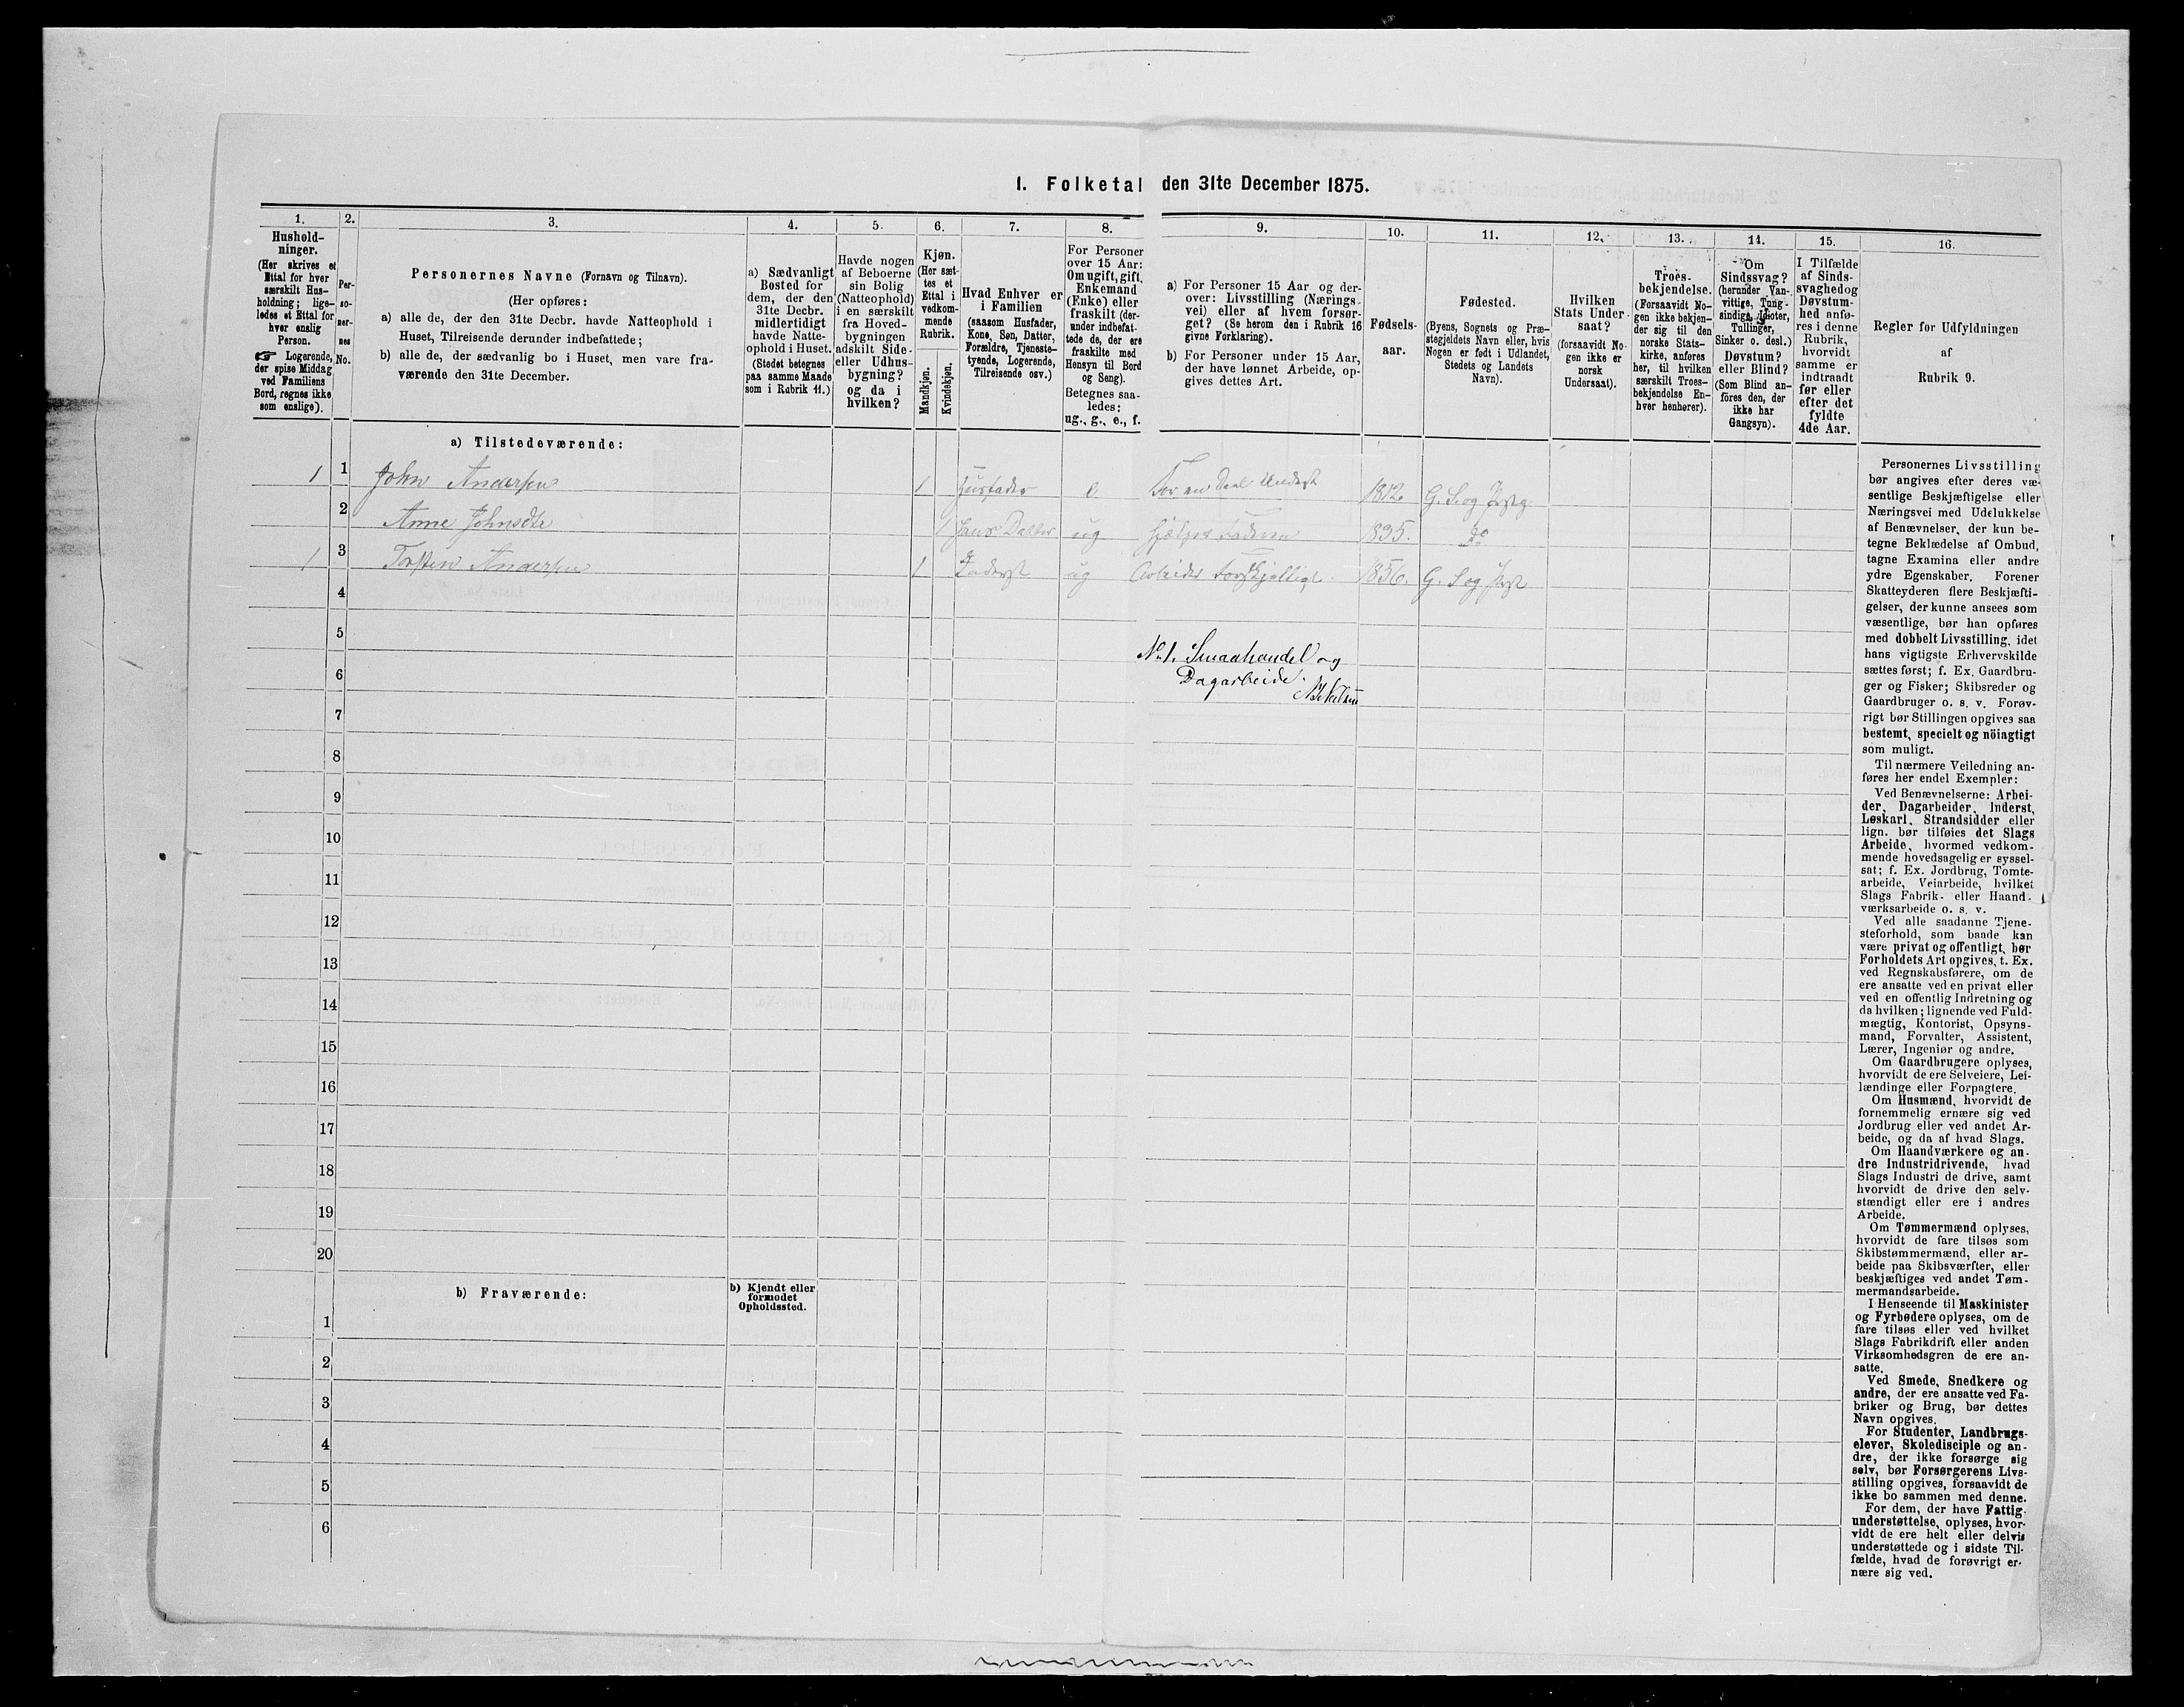 1. Folketal den 31te December 1875.
1.
Hushold-
ninger.
(Her skrives et
Ettal for hver
særskilt Hus-
holdning; lige-
ledes et Ettal for
hver enslig
Person.
☞ Logerende,
der spise Middag
ved Familiens
Bord, regnes ikke
som enslige).
2.
Per-
so-
ner-
nes
No.
3.
Personernes Navne (Fornavn og Tilnavn).
(Her opføres:
a) alle de, der den 31te Decbr. havde Natteophold i
Huset, Tilreisende derunder indbefattede;
b) alle de, der sædvanlig bo i Huset, men vare fra-
værende den 31te December.
4.
a) Sædvanligt
Bosted for
dem, der den
31te Decbr.
midlertidigt
havde Natte-
ophold i Huset.
(Stedet betegnes
paa samme Maade
som i Rubrik 11.)
5.
Havde nogen
af Beboerne
sin Bolig
(Natteophold)
i en særskilt
fra Hoved-
bygningen
adskilt Side-
eller Udhus-
bygning?
og da i
hvilken?
6.
Kjøn.
(Her sæt-
tes et
Ettal i
vedkom-
mende
Rubrik.
Mandkjøn.
Kvindekjøn.
7.
Hvad Enhver er
i Familien
(saasom Husfader,
Kone, Søn, Datter,
Forældre, Tjeneste-
tyende, Logerende,
Tilreisende osv.)
8.
For Personer
over 15 Aar:
Om ugift, gift,
Enkemand
(Enke) eller
fraskilt (der-
under indbefat-
tede de, der ere
fraskilte med
Hensyn til Bord
og Seng).
Betegnes saa-
ledes:
ug., g., e., f.
9.
a) For Personer 15 Aar og der-
over: Livsstilling (Nærings-
vei) eller af hvem forsør-
get? (Se herom den i Rubrik 16
givne Forklaring).
b) For Personer under 15 Aar,
der have lønnet Arbeide, op-
gives dettes Art.
10.
Fødsels-
aar.
11.
Fødested.
(Byens, Sognets og Præ-
stegjeldets Navn eller, hvis
Nogen er født i Udlandet,
Stedets og Landets
Navn).
12.
Hvilken
Stats Under-
saat?
(forsaavidt No-
gen ikke er
norsk
Undersaat).
13.
Troes-
bekjendelse.
(Forsaavidt No-
gen ikke bekjen-
der sig til den
norske Stats-
kirke, anføres
her, til hvilken
særskilt Troes-
bekjendelse En-
hver henhører).
14.
Om
Sindssvag?
(herunder Van-
vittige, Tung-
sindige, Idioter,
Tullinger,
Sinker o. desl.)
Døvstum?
eller Blind?
(Som Blind an-
føres den, der
ikke har
Gangsyn).
15.
I Tilfælde
af Sinds-
svaghed og
Døvstum-
hed anfø-
res i denne
Rubrik,
hvorvidt
samme er
indtraadt
før eller
efter det
fyldte
4de Aar.
16.
Regler for Udfyldningen
af
Rubrik 9.
a) Tilstedeværende:
1 1 John Andersen 1 Husfader e 1812. G. S. og
2 Anne Johnsdtr 1 Datter ug 1835. do
1 3 Torsten Andersen 1 ug Arbeider Forskjelligt. 1856. G. S og
4
5
6
No 1. Smaahandel og
Dagarbeide.
7
8
9
10
11
12
13
14
15
16
17
18
19
20
b) Fraværende:
b) Kjendt eller
formodet
Opholdssted.
1
2
3
4
5
6
Personernes Livsstilling
bør angives efter deres væ-
sentlige Beskjæftigelse eller
Næringsvei med Udelukkelse
af Benævnelser, der kun be-
tegne Beklædelse af Ombud,
tagne Examina eller andre
ydre Egenskaber. Forener
Skatteyderen flere Beskjæfti-
gelser, der kunne ansees som
væsentlige, bør han opføres
med dobbelt Livsstilling, idet
hans vigtigste Erhvervskilde
sættes først; f. Ex. Gaardbru-
ger og Fisker; Skibsreder og
Gaardbruger o. s. v. Forøv-
rigt bør Stillingen opgives saa
bestemt, specielt og nöiagtigt
som muligt.
Til nærmere Veiledning an-
føres her endel Exempler:
Ved Benævnelserne: Arbei-
der, Dagarbeider, Inderst,
Løskarl, Strandsidder eller
lign. bør tilføies det Slags
Arbeide, hvormed vedkom-
mende hovedsagelig er syssel-
sat; f. Ex. Jordbrug, Tomte-
arbeide, Veiarbeide, hvilket
Slags Fabrik- eller Haand-
værksarbeide o. s. v.
Ved alle saadanne Tjene-
steforhold, som baade kan
være privat og offentligt, bør
Forholdets Art opgives, t. Ex.
ved Regnskabsførere, om de
ere ansatte ved en privat eller
ved en offentlig Indretning og
da hvilken; lignende ved Fuld-
mægtig, Kontorist, Opsyns-
mand, Forvalter, Assistent,
Lærer, Ingeniør og andre.
Om Gaardbrugere oplyses,
hvorvidt de ere Selveiere, Lei-
lændinge eller Forpagtere.
Om Husmænd, hvorvidt de
fornemmelig ernære sig ved
Jordbrug eller ved andet Ar-
beide, og da af hvad Slags.
Om Haandværkere og an-
dre Industridrivende, hvad
Slags Industri de drive, samt
hvorvidt de drive den selv-
stændigt eller ere i andres
Arbeide.
Om Tømmermænd oplyses,
hvorvidt de fare tilsøs som
Skibstømmermænd, eller ar-
beide paa Skibsværfter, eller
beskjæftiges ved andet Tøm-
mermandsarbeide.
I Henseende til Maskinister
og Fyrbødere oplyses, om de
fare tilsøs eller ved hvilket
Slags Fabrikdrift eller anden
Virksomhedsgren de ere an-
satte.
Ved Smede, Snedkere og
andre, der ere ansatte ved Fa-
briker og Brug, bør dettes
Navn opgives.
For Studenter, Landbrugs-
elever, Skoledisciple og an-
dre, der ikke forsørge sig
selv, bør Forsørgerens Livs-
stilling opgives, forsaavidt de
ikke bo sammen med denne.
For dem, der have Fattig-
understøttelse, oplyses, hvor-
vidt de ere helt eller delvis
understøttede og i sidste Til-
fælde, hvad de forøvrigt er-
nære sig ved.